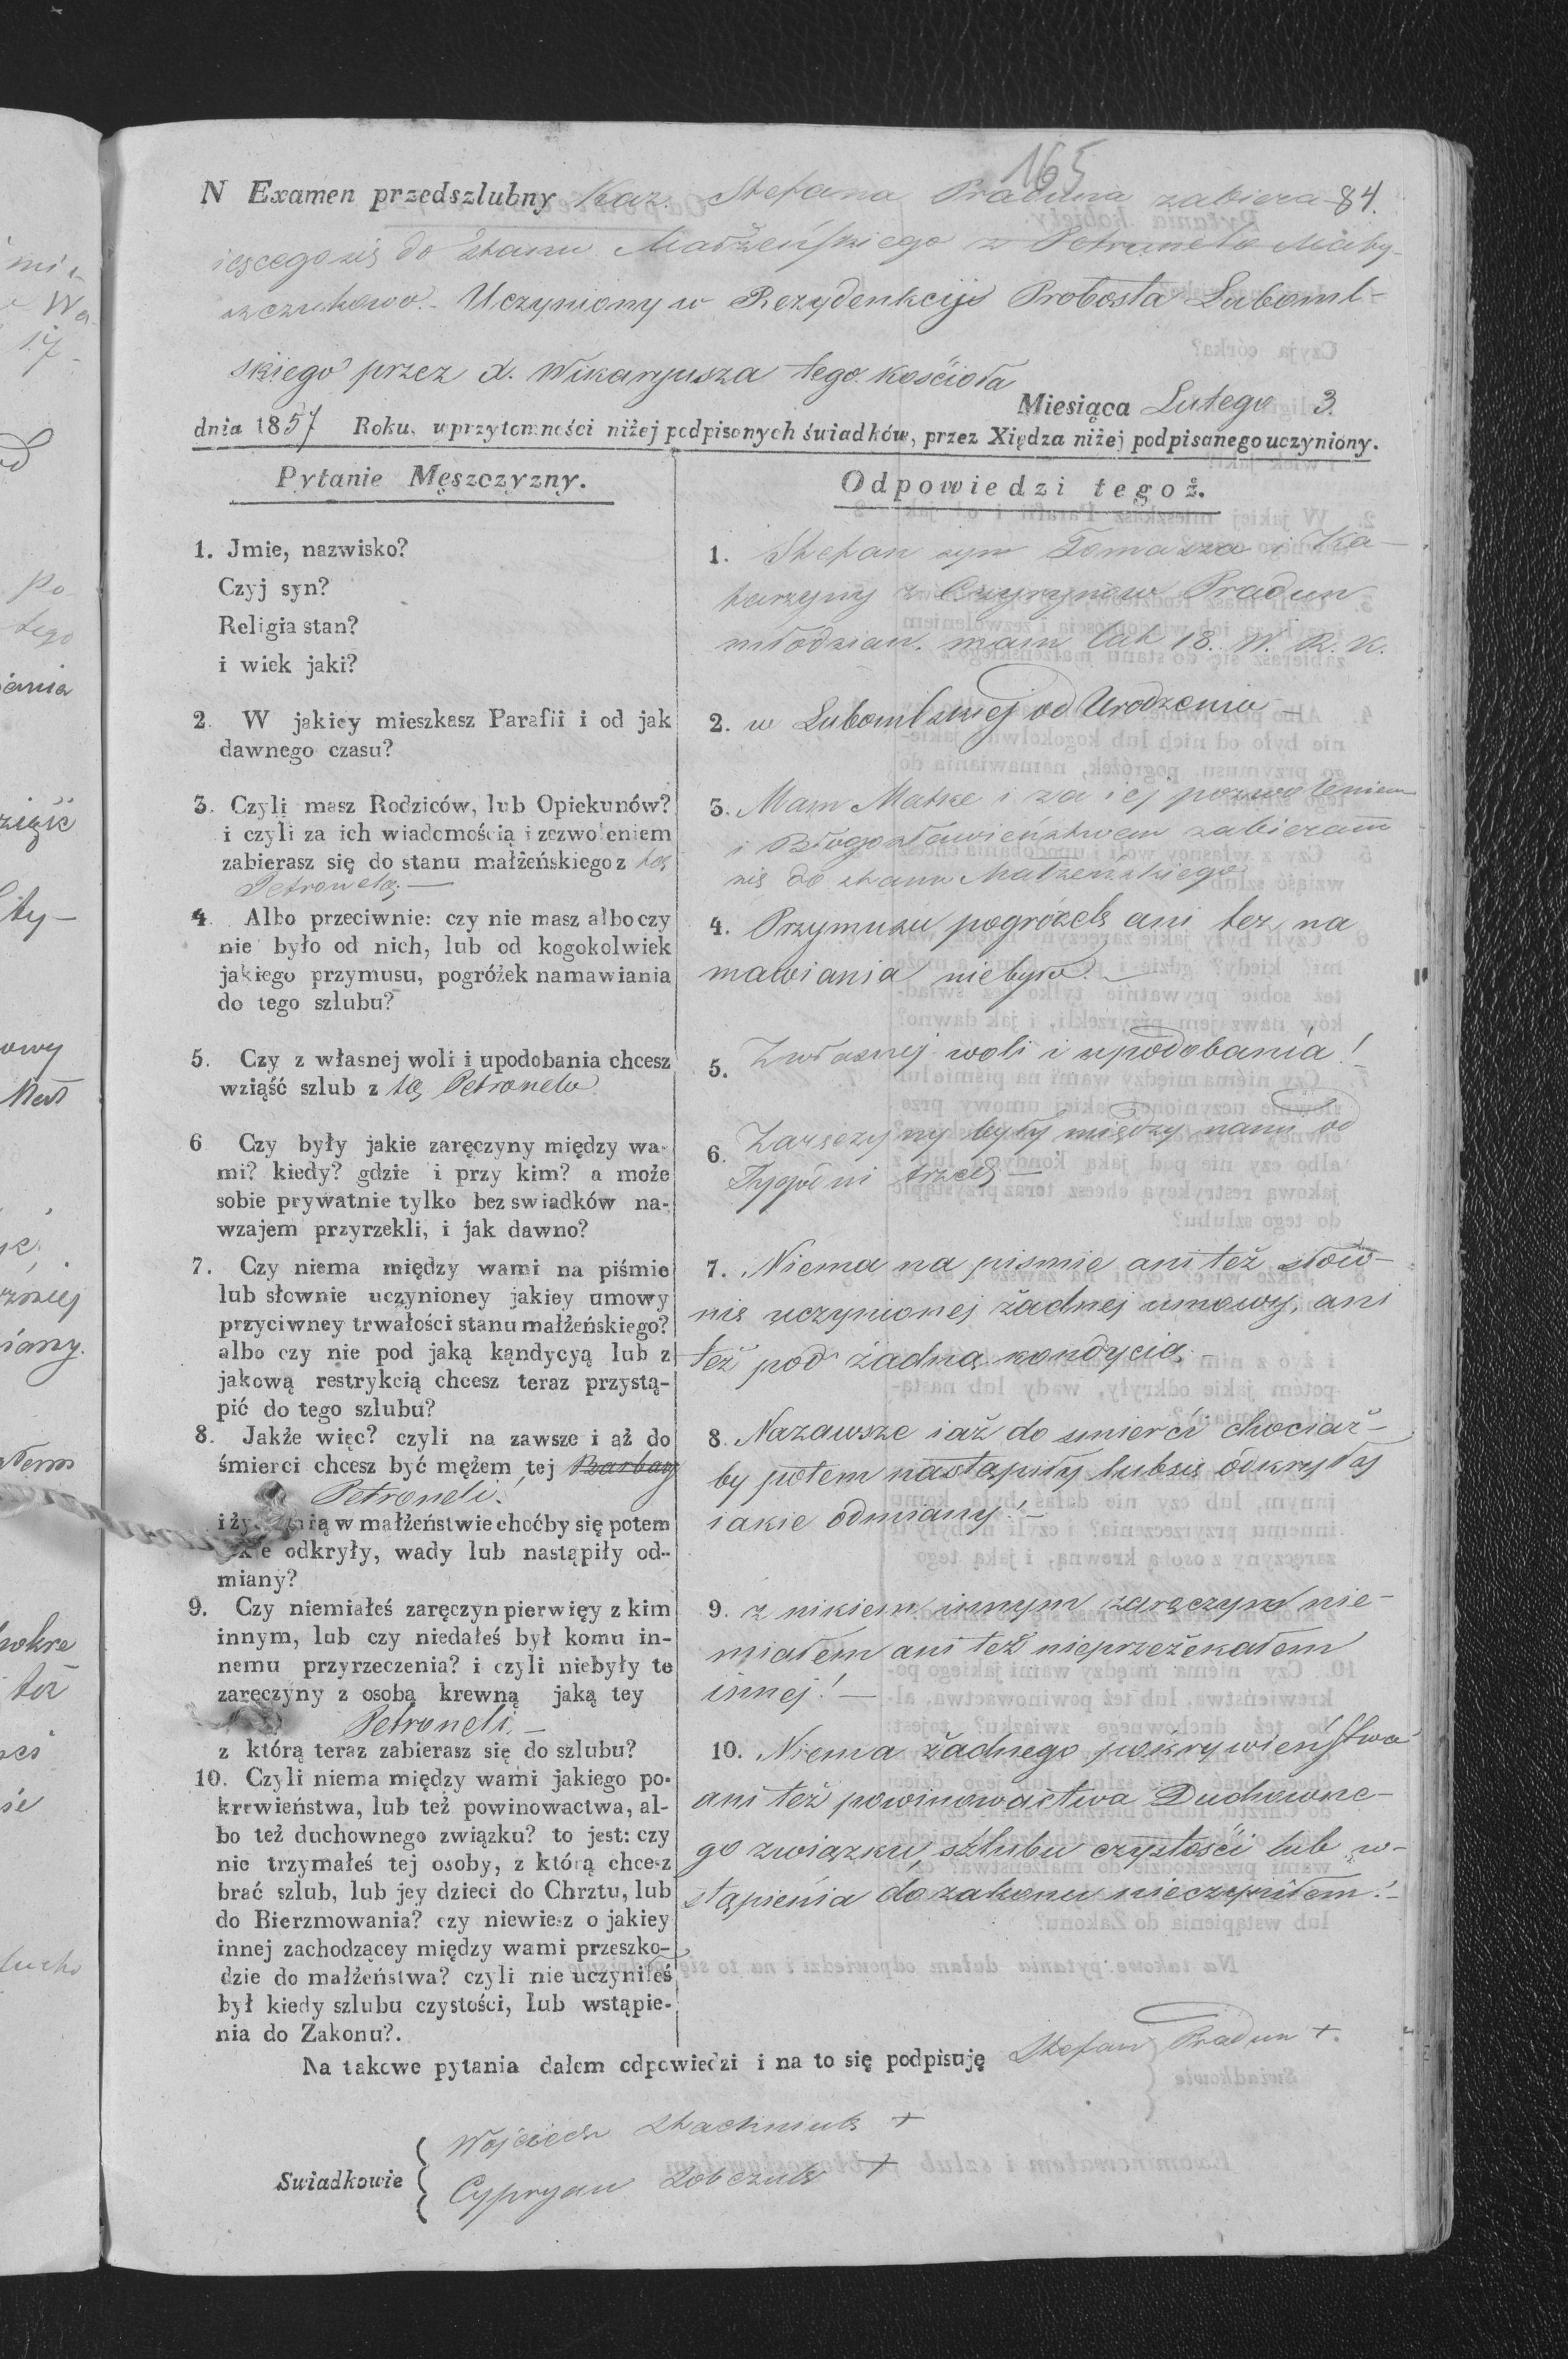 165
N Examen przedszlubny Kaz. Stefana Praduna zabiera- 84.
iącego się do Stanu Małżeńskiego z Petronelo Maty-
szczukowo. Uczyniony w Rezydenkcyi Probosta Luboml-
skiego przez X. Wikaryusza tego kościoła
Miesiąca Lutego 3.
dnia 1857 Roku, w przytomności niżej podpisanych świadków, przez Xiędza niżej podpisanego uczyniony.
Pytanie Męszczyzny.
1. Jmie, nazwisko?
Czyj syn?
Religia stan?
i wiek jaki?
2. W jakiey mieszkasz Parafii i od jak
dawnego czasu?
3. Czyli masz Rodziców, lub Opiekunów?
i czyli za ich wiadomością i zezwoleniem
zabierasz się do stanu małżeńskiego z tą
Petronelą
4. Albo przeciwnie: czy nie masz albo czy
nie było od nich, lub od kogokolwiek
jakiego przymusu, pogróżek namawiania
do tego szlubu?
5. Czy z własnej woli i upodobania chcesz
wziąść szlub z tą Petronelo
6 Czy były jakie zaręczyny między wa-
mi? kiedy? gdzie i przy kim? a może
sobie prywatnie tylko bez swiadków na-
wzajem przyrzekli, i jak dawno?
7. Czy niema między wami na piśmie
lub słownie uczynioney jakiey umowy
przyciwney trwałości stanu małżeńskiego?
albo czy nie pod jaką kąndycyą lub z
jakową restrykcią chcesz teraz przystą-
pić do tego szlubu?
8. Jakże więc? czyli na zawsze i ąż do
śmierci chcesz być mężem tej Barbary
Petroneli.
i ży w małżeństwie choćby się potem
odkryły, wady lub nastąpiły od-
miany?
9. Czy niemiałeś zaręczyn pierwięy z kim
innym, lub czy niedałeś był komu in-
nemu przyrzeczenia? i czyli niebyły te
zaręczyny z osobą krewną jaką tey
Petroneli
z którą teraz zabierasz się do szlubu?
10. Czyli niema między wami jakiego po-
krewieństwa, lub też powinowactwa, al-
bo też duchownego związku? to jest: czy
nie trzymałeś tej osoby, z którą chcesz
brać szlub, lub jey dzieci do Chrztu, lub
do Bierzmowania? czy niewiesz o jakiey
innej zachodzącey między wami przeszko-
dzie do małżeństwa? czyli nie uczyniłeś
był kiedy szlubu czystości, lub wstąpie-
nia do Zakonu?.
Odpowiedzi tegoż.
1. Stefan syn Tomasza i Ka-
tarzyny z Pradun
młodzian. mam lat 18. W. R. K.
2. w Lubomlskiej od Urodzenia
3. Mam Matke i za iej pozwoleniem
i Błogosławieństwem zabieram
się do stanu Małżeńskiego
4. Przymusu pogróżek ani tez na
mawiania niebyło.
5. Zwłasnej woli i upodobania!
6. Zaręczyny były między nami od
Tygodni trzech
7. Niema na pismie ani też słow-
nie uczynionej żadnej umowy, ani
też pod żadną kondycią
8. Nazawsze i aż do smierci chociaż-
by potem nastąpiły lubsię ódkryłaj
iakie ódmiany!
9. z nikiem innym zaręczyn nie-
miałem ani też nieprzeżekałem
innej!
10. Niema żadnego pokrywieństwa
ani też powinowactwa Duchowne-
go związku, szlubu czystości lub w-
stąpienia do zakonu nieczyniłem!
Na takowe pytania dałem odpowiedzi i na to się podpisuję Stefan Pradun +.
Swiadkowie Wojciech Stachniuk +
Cypryan Łobczuk +